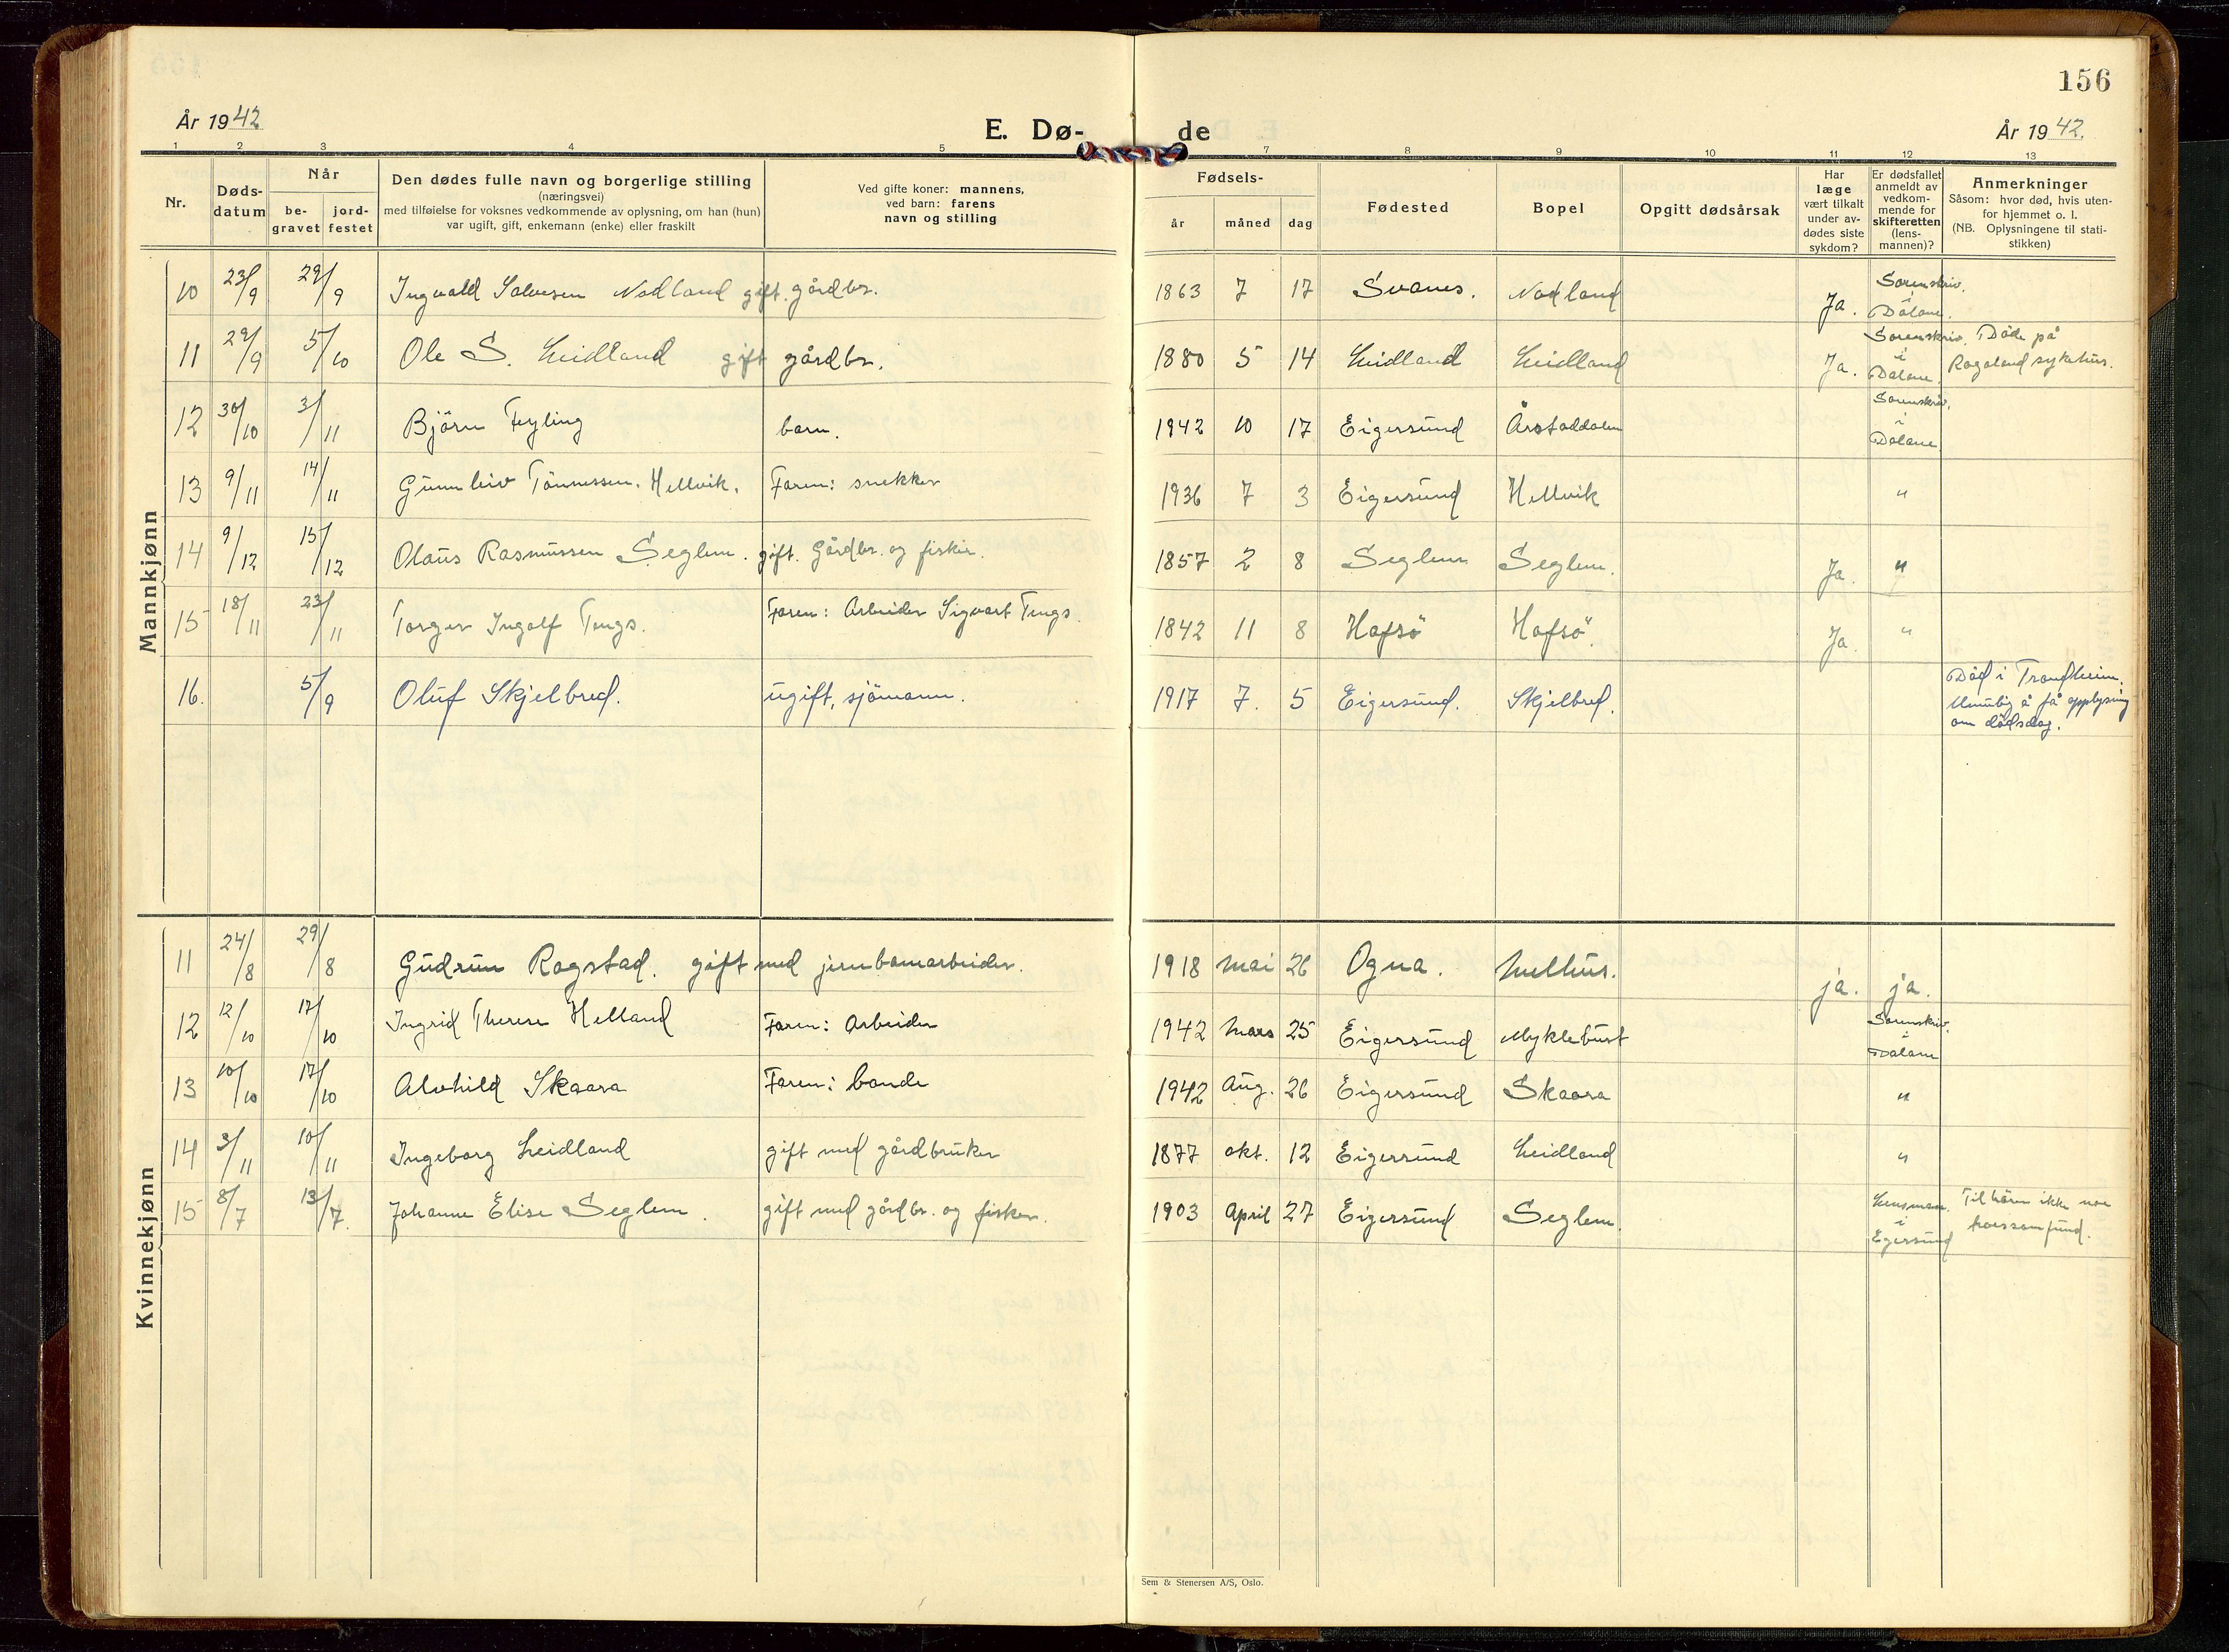 156
År 1942
E. Dø-
de
År 1942.
1 2 3 4 5 7 8 9 10 11 12 13
Nr.
Døds-
datum
Når
be-
gravet
jord-
festet
Den dødes fulle navn og borgerlige stilling
(næringsvei)
med tilføielse for voksnes vedkommende av oplysning, om han (hun)
var ugift, gift, enkemann (enke) eller fraskilt
Ved gifte koner: mannens,
ved barn: farens
navn og stilling
Fødsels-
år
måned
dag
Fødested
Bopel
Opgitt dødsårsak
Har
læge
vært tilkalt
under av-
dødes siste
sykdom?
Er dødsfallet
anmeldt av
vedkom-
mende for
skifteretten
(lens-
mannen)?
Anmerkninger
Såsom: hvor død, hvis uten-
for hjemmet o. l.
(NB. Oplysningene til stati-
stikken)
Mannkjønn
10 23/9 29/9 Ingvald Salvesen Nodland gift. gårdbr. 1863 7 17 Svanes. Nodland Ja. Sorenskriv. i Dalane.
11 29/9 5/10 Ole S. Leidland gift gårdbr. 1880 5 14 Leidland Leidland Ja. Sorenskriv. i Dalane. Døde på
Rogaland sykehus.
12 30/10 3/11 Björn Feyling barn. 1942 10 17 Eigersund Årstaddalen Sorenskriv. i Dalane
13 9/11 14/11 Gunnleiv Tönnessen. Hellvik. Faren: snekker 1936 7 3 Eigersund Hellvik "
14 9/12 15/12 Olaus Rasmussen Seglem. gift. Gårdbr. og fisker. 1857 2 8 Seglem Seglem. Ja. "
15 18/11 23/11 Torger Ingolf Tengs. Faren: Arbeider Sigvart Tengs. 1842 11 8 Hafsö Hafsö. Ja. "
16. 5/9 Oluf Skjelbred. ugift, sjömann. 1917 7. 5 Eigersund. Skjelbred. Död i Trondheim.
Umulig å få opplysning
om dödsdag.
Kvinnekjønn
11 24/8 29/8 Gudrun Rogstad. gift med jernbanearbeider. 1918 mai 26 Ogna. Melhus. ja. ja.
12 12/10 17/10 Ingrid Therese Helland Faren: Arbeider 1942 Mars 25 Eigersund Myklebust Sorenskriv. i Dalane
13 10/10 17/10 Alvhild Skaara Faren: bonde 1942 Aug. 26 Eigersund Skaara "
14 3/11 10/11 Ingeborg Leidland gift med gårdbruker 1877 okt. 12 Eigersund Leidland "
15 8/7 13/7. Johanne Elise Seglem. gift med gårdbr. og fisker. 1903 April 27 Eigersund Seglem. Lensman. i Egersund Tilhörer ikke noe
trossamfund.
Sem & Stenersen A/S, Oslo.